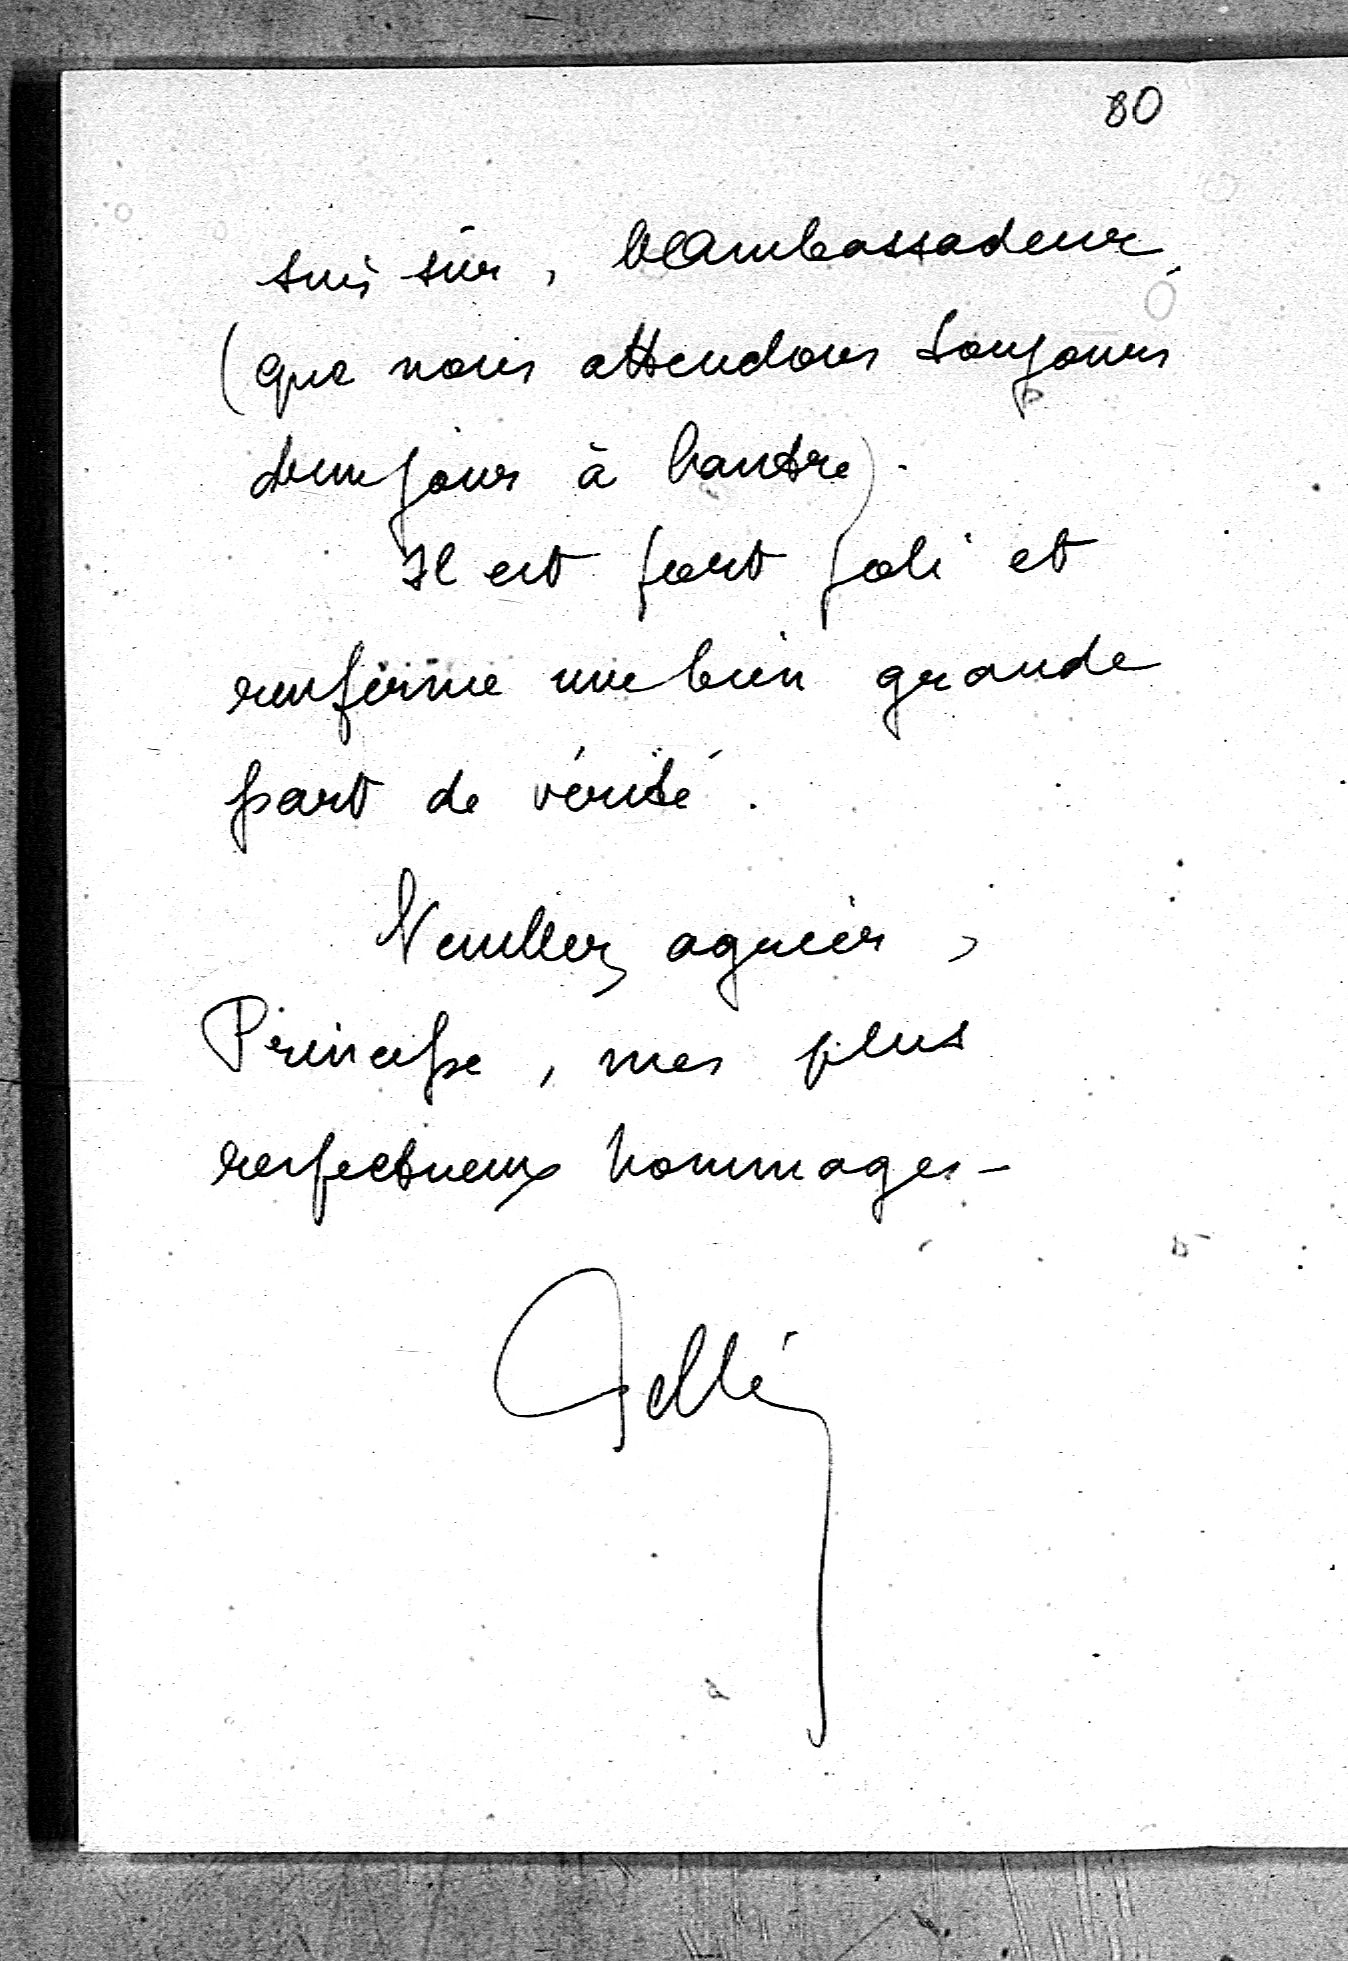 80
suis sûr, l'Ambassadeur
(que nous attendons toujours
d'un jour à l'autre).
Il est fort joli et
renferme une bien grande
part de vérité.
Veuillez agréer,
Princesse, mes plus
respectueux hommages -